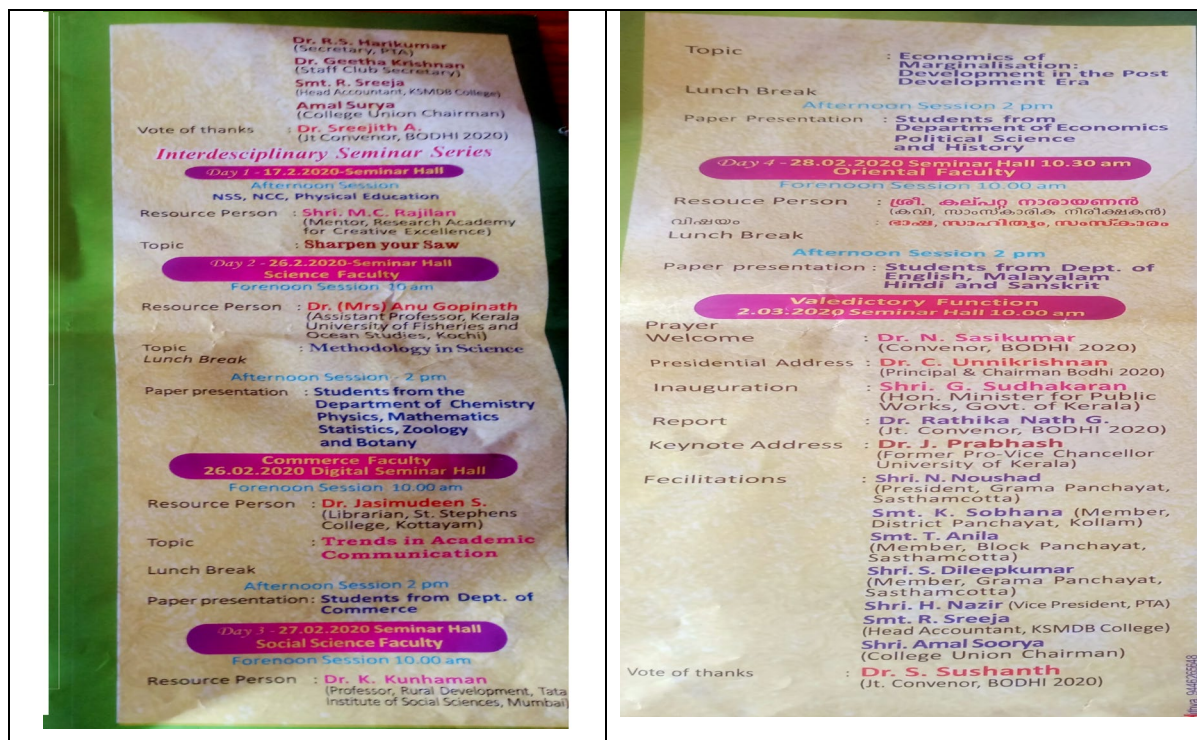 Dr. R.S. Harikumar
(Secretary, PTA)
Dr. Geetha Krishnan
(Staff Club Secretary)
Smt. R. Sreeja
(Head Accountant, KSMDB College)
Amal Surya
(College Union Chairman)
Vote of thanks : Dr. Sreejith A.
(Jt Convenor, BODHI 2020)
Interdesciplinary Seminar Series
Day 1 - 17.2.2020-Seminar Hall
Afternoon Session
NSS, NCC, Physical Education
Resource Person : Shri. M.C. Rajilan
(Mentor, Research Academy
for Creative Excellence)
Topic : Sharpen your Saw
Day 2 - 26.2.2020-Seminar Hall
Science Faculty
Forenoon Session 10 am
Resource Person : Dr. (Mrs) Anu Gopinath
(Assistant Professor, Kerala
University of Fisheries and
Ocean Studies, Kochi)
Topic : Methodology in Science
Lunch Break
Afternoon Session - 2 pm
Paper presentation : Students from the
Department of Chemistry
Physics, Mathematics
Statistics, Zoology
and Botany
Commerce Faculty
26.02.2020 Digital Seminar Hall
Forenoon Session 10.00 am
Resource Person : Dr. Jasimudeen S.
(Librarian, St. Stephens
College, Kottayam)
Topic : Trends in Academic
Communication
Lunch Break
Afternoon Session 2 pm
Paper presentation : Students from Dept. of
Commerce
Day 3 - 27.02.2020 Seminar Hall
Social Science Faculty
Forenoon Session 10.00 am
Resource Person : Dr. K. Kunhaman
(Professor, Rural Development, Tata
Institute of Social Sciences, Mumbai)
Topic : Economics of
Marginalisation:
Development in the Post
Development Era
Lunch Break
Afternoon Session 2 pm
Paper Presentation : Students from
Department of Economics
Political Science
and History
Day 4 - 28.02.2020 Seminar Hall 10.30 am
Oriental Faculty
Forenoon Session 10.00 am
Resouce Person : ശ്രീ. കല്പറ്റ നാരായണൻ
(കവി, സാംസ്കാരിക നിരീക്ഷകൻ)
വിഷയം : ഭാഷ, സാഹിത്യം, സംസ്കാരം
Lunch Break
Afternoon Session 2 pm
Paper presentation : Students from Dept. of
English, Malayalam
Hindi and Sanskrit
Valedictory Function
2.03.2020 Seminar Hall 10.00 am
Prayer
Welcome : Dr. N. Sasikumar
(Convenor, BODHI 2020)
Presidential Address : Dr. C. Unnikrishnan
(Principal & Chairman Bodhi 2020)
Inauguration : Shri. G. Sudhakaran
(Hon. Minister for Public
Works, Govt. of Kerala)
Report : Dr. Rathika Nath G.
(Jt. Convenor, BODHI 2020)
Keynote Address : Dr. J. Prabhash
(Former Pro-Vice Chancellor
University of Kerala)
Fecilitations : Shri. N. Noushad
(President, Grama Panchayat,
Sasthamcotta)
Smt. K. Sobhana (Member,
District Panchayat, Kollam)
Smt. T. Anila
(Member, Block Panchayat,
Sasthamcotta)
Shri. S. Dileepkumar
(Member, Grama Panchayat,
Sasthamcotta)
Shri. H. Nazir (Vice President, PTA)
Smt. R. Sreeja
(Head Accountant, KSMDB College)
Shri. Amal Soorya
(College Union Chairman)
Vote of thanks : Dr. S. Sushanth
(Jt. Convenor, BODHI 2020)